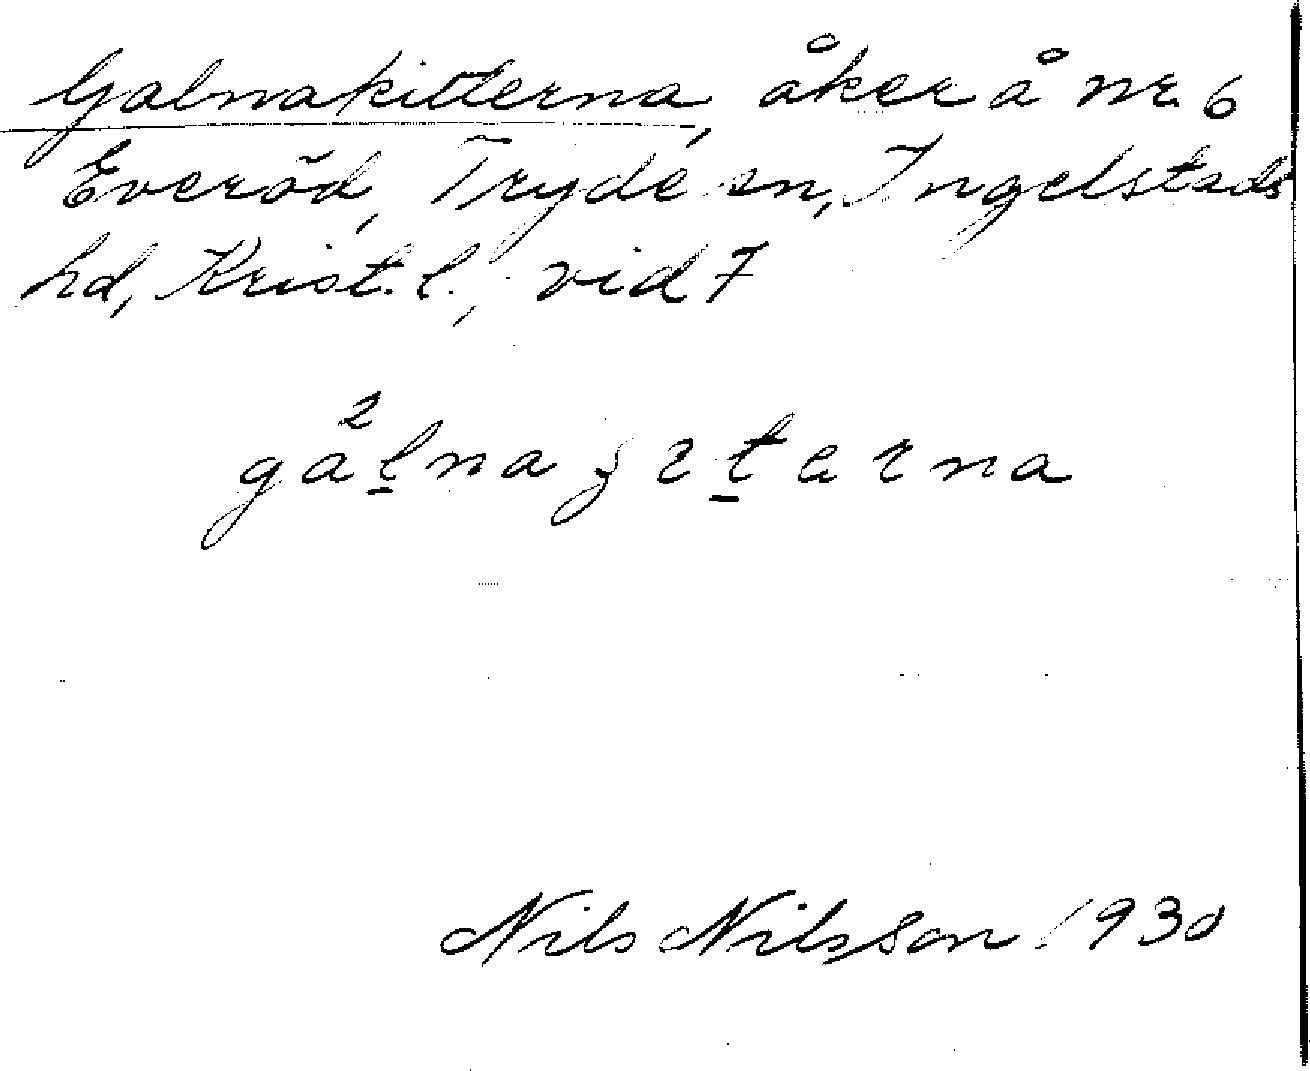 Galnakitterna, åker å nr. 6
Everöd, Tryde sn, Ingelstads
hd, Krist. l., vid 7
Nils Nilsson 1930